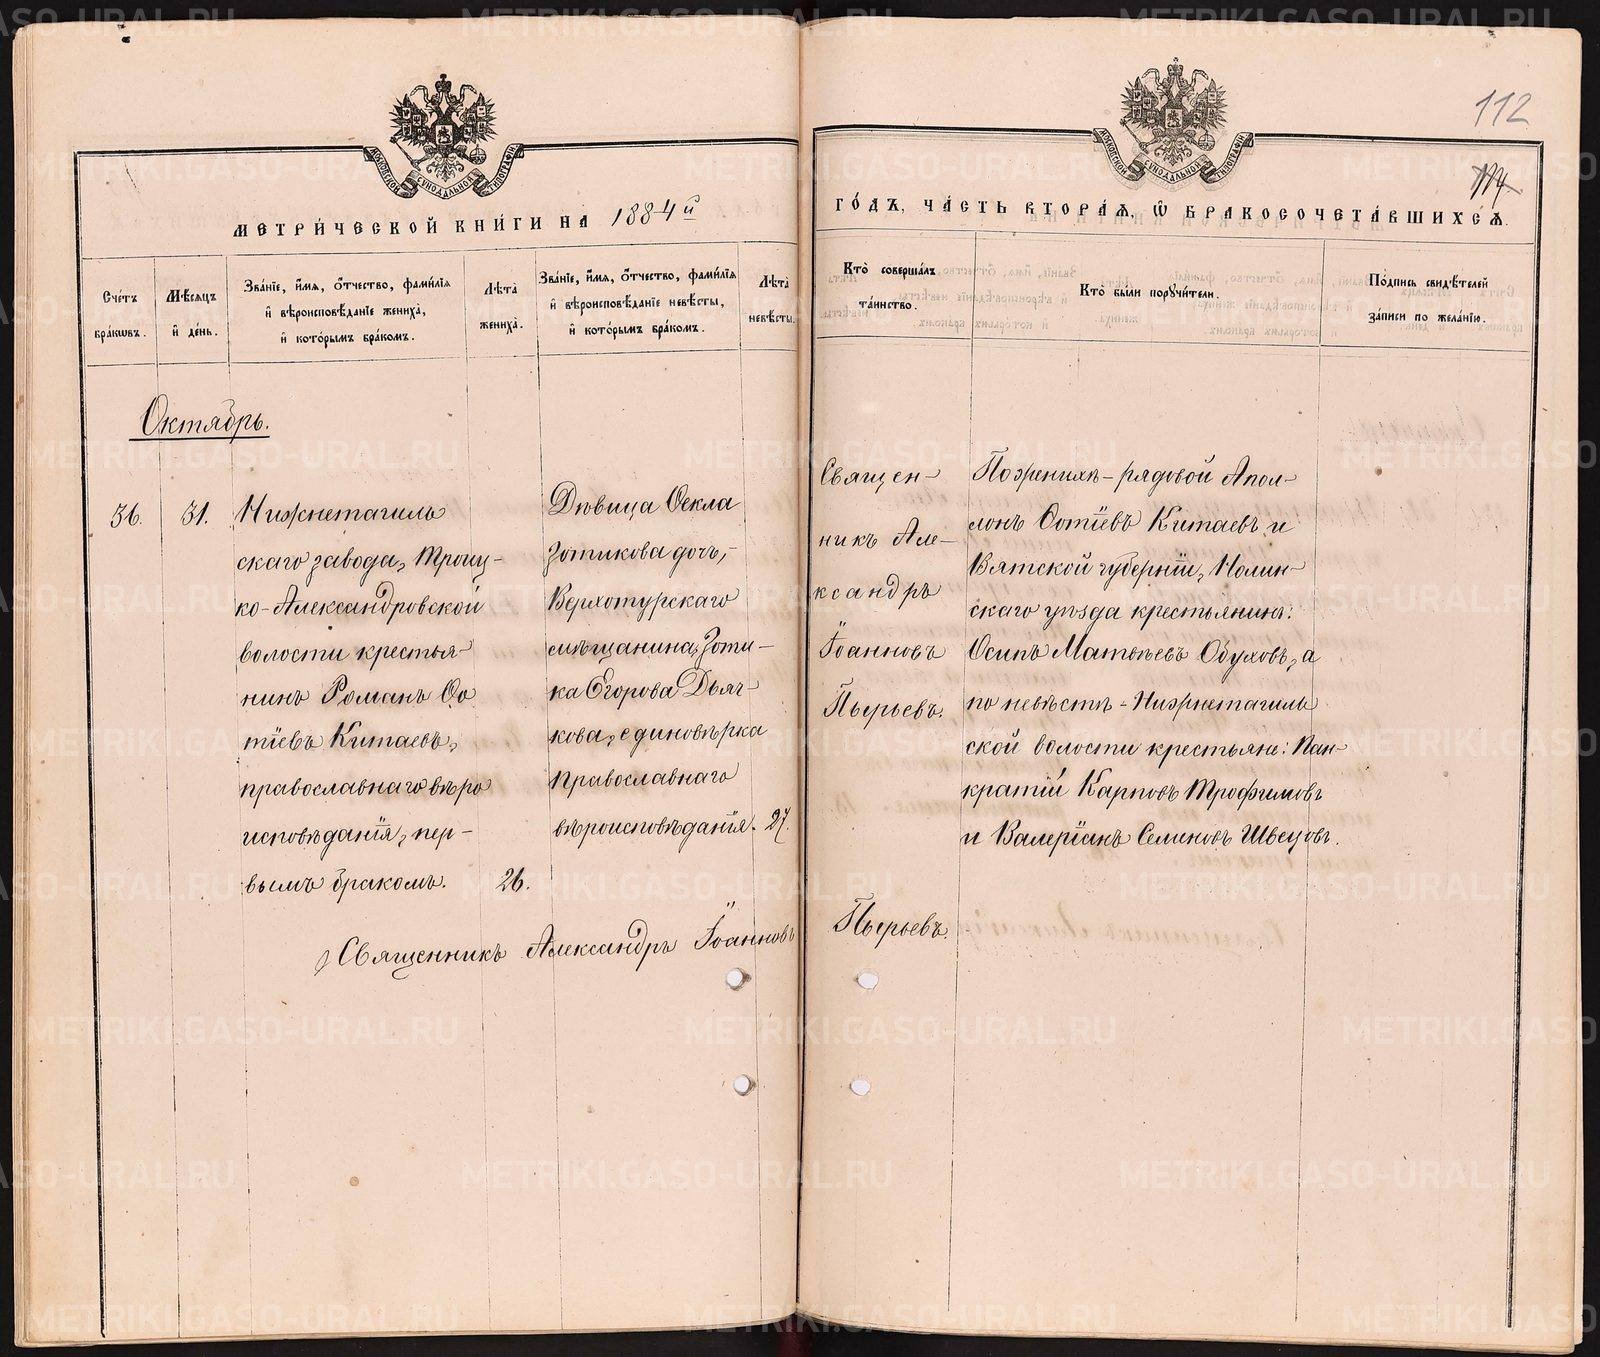 112
114
МЕТРИ́ЧЕСКОЙ КНИ́ГИ НА 1884й
ГО́ДЪ, ЧА́СТЬ ВТОРА́Я, Ѽ БРАКОСОЧЕТА́ВШИХСѦ.
Сче́тъ
бра́кѡвъ.
Мѣ́сѧцъ
и҆ де́нь.
Зва́нїе, и҆́мѧ, ѻ҆́тчество, фами́лїѧ
и҆ вѣроисповѣ́данїе жениха̀,
и҆ кото́рымъ бра́комъ.
Лѣта̀
жениха̀.
Зва́нїе, и҆́мѧ, ѻ҆́тчество, фами́лїѧ
и҆ вѣроисповѣ́данїе невѣ́сты,
и҆ кото́рымъ бра́комъ.
Лѣта̀
невѣ́сты.
Кто̀ соверша́лъ
та́инство.
Кто̀ бы́ли порꙋчи́тели.
По́дпись свидѣ́телей
за́писи по жела́нїю.
Октябрь.
36.
31.
Нижнетагиль
скаго завода, Троиц-
ко-Александровской
волости крестья-
нинъ Романъ Ѳо
тіевъ Китаевъ,
православнаго вѣро
исповѣданія, пер-
вымъ бракомъ.
26.
Дѣвица Ѳекла
Зотикова дочь,-
Верхотурскаго
мѣщанина, Зоти-
ка Егорова Дьяч-
кова, единовѣрка
Православнаго
вѣроисповѣданія.
27.
Священ-
никъ Але-
ксандръ
Іоанновъ
Пырьевъ.
По женихѣ - рядовой Апол-
лонъ Ѳотіевъ Китаевъ и
Вятской губерніи, Нолин-
скаго уѣзда крестьянинъ:
Осипъ Матвѣевъ Обуховъ, а
по невѣстѣ - Нижнетагиль
ской волости крестьяне: Пан-
кратій Карповъ Трофимовъ
и Валеріанъ Семеновъ Швецовъ.
Священникъ Александръ Іоанновъ Пырьевъ.